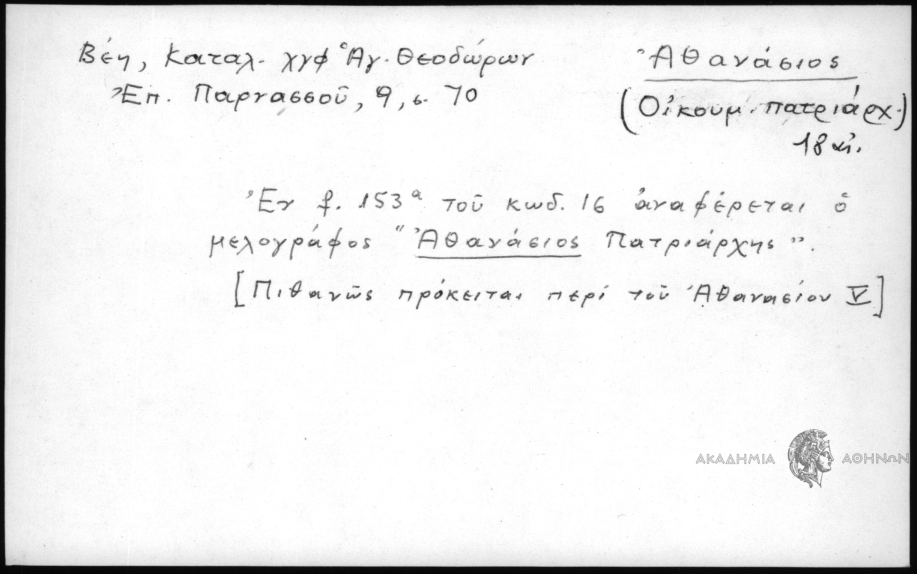 Βέη, Καταλ. χγφ Ἁγ. Θεοδώρων
Ἐπ. Παρνασσοῦ, 9, σ. 70
Ἀθανάσιος
(Οἰκουμ. πατριάρχ.)
18 αἰ.
Ἐν f. 153ᵃ τοῦ κωδ. 16 ἀναφέρεται ὁ
μελογράφος "Ἀθανάσιος Πατριάρχης".
[Πιθανῶς πρόκειται περί τοῦ Ἀθανασίου V]
ΑΚΑΔΗΜΙΑ ΑΘΗΝΩΝ